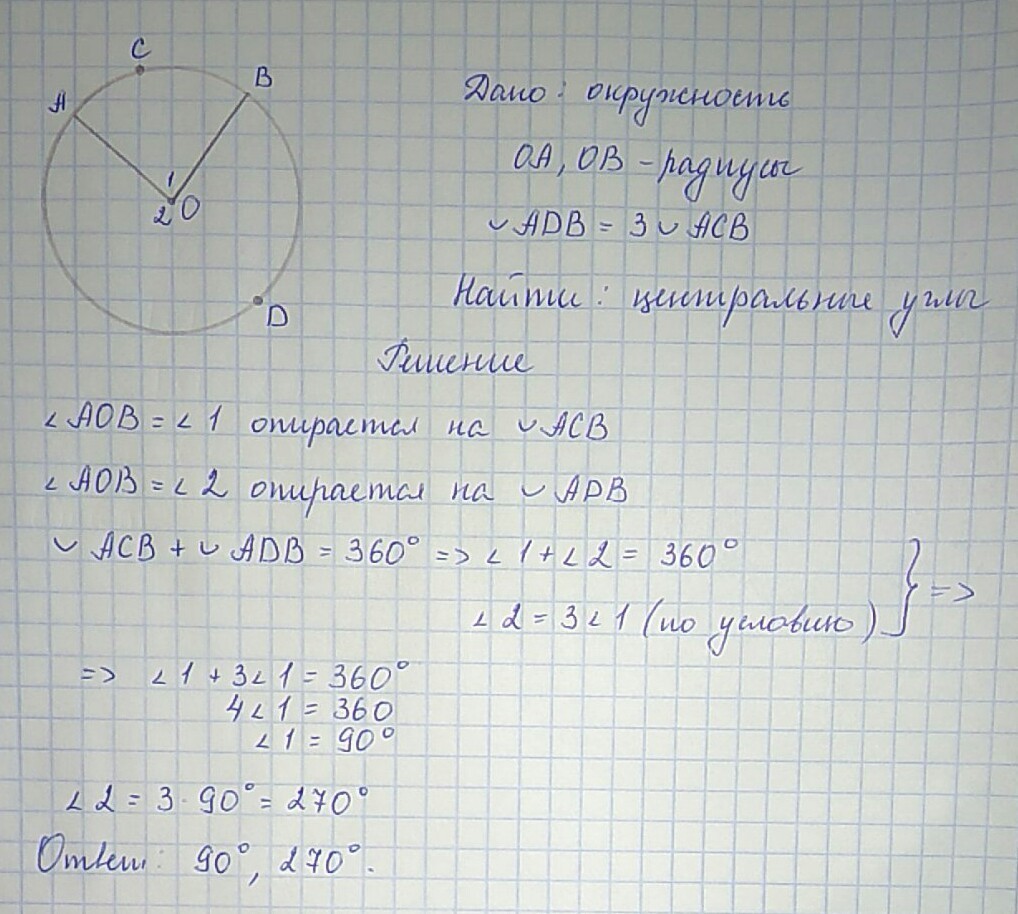 C
B
A
1
2 O
D
Дано: окружность
OA, OB - радиусы
◡ ADB = 3 ◡ ACB
Найти: центральные углы
Решение
∠ AOB = ∠ 1 опирается на ◡ ACB
∠ AOB = ∠ 2 опирается на ◡ ADB
◡ ACB + ◡ ADB = 360° => ∠ 1 + ∠ 2 = 360°
∠ 2 = 3 ∠ 1 (по условию) } =>
=> ∠ 1 + 3 ∠ 1 = 360°
4 ∠ 1 = 360
∠ 1 = 90°
∠ 2 = 3 · 90° = 270°
Ответ: 90°, 270°.